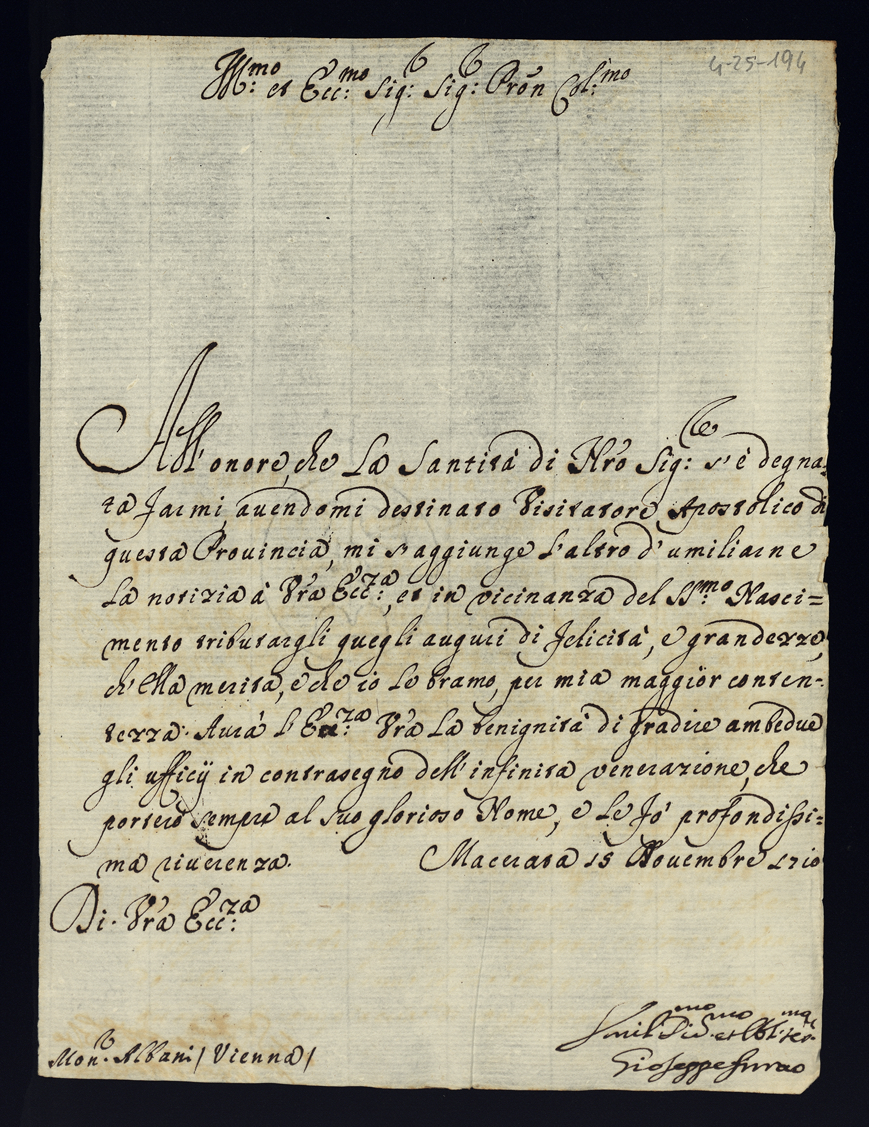 4-25-194
Ill:mo et Ecc:mo Sig:r Sig:r Prōn Col:mo
All'onore, che La Santità di Nr̄o Sig:re s'è degna-
ta farmi, avendomi destinato Visitatore Apostolico di
questa Provincia, mi s'aggiunge l'altro d'umiliarne
La notizia à Vr̄a Ecc:za, et in vicinanza del SS:mo Nasci=
mento tributargli quegli augurj di felicità, e grandezze,
ch'Ella merita, e che io Le bramo, per mia maggior conten-
tezza. Avrà l'Ec:za Vr̄a La benignità di gradire ambedue
gli ufficij in contrasegno dell'infinita venerazione, che
porterò sempre al suo glorioso Nome, e Le fò profondissi=
ma riverenza. Macerata 15 Novembre 1710
Di Vr̄a Ecc:za
Mon:r Albani / Vienna /
Umil:mo Di:mo et Obl:mo
Gioseppe